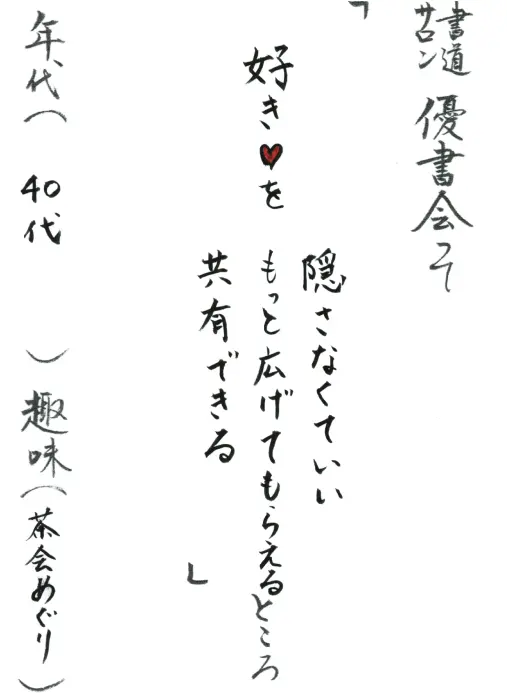 書道サロン 優書会って
「
好き♥を
隠さなくていい
もっと広げてもらえるところ
共有できる
」
年代( 40代 ) 趣味(茶会めぐり)